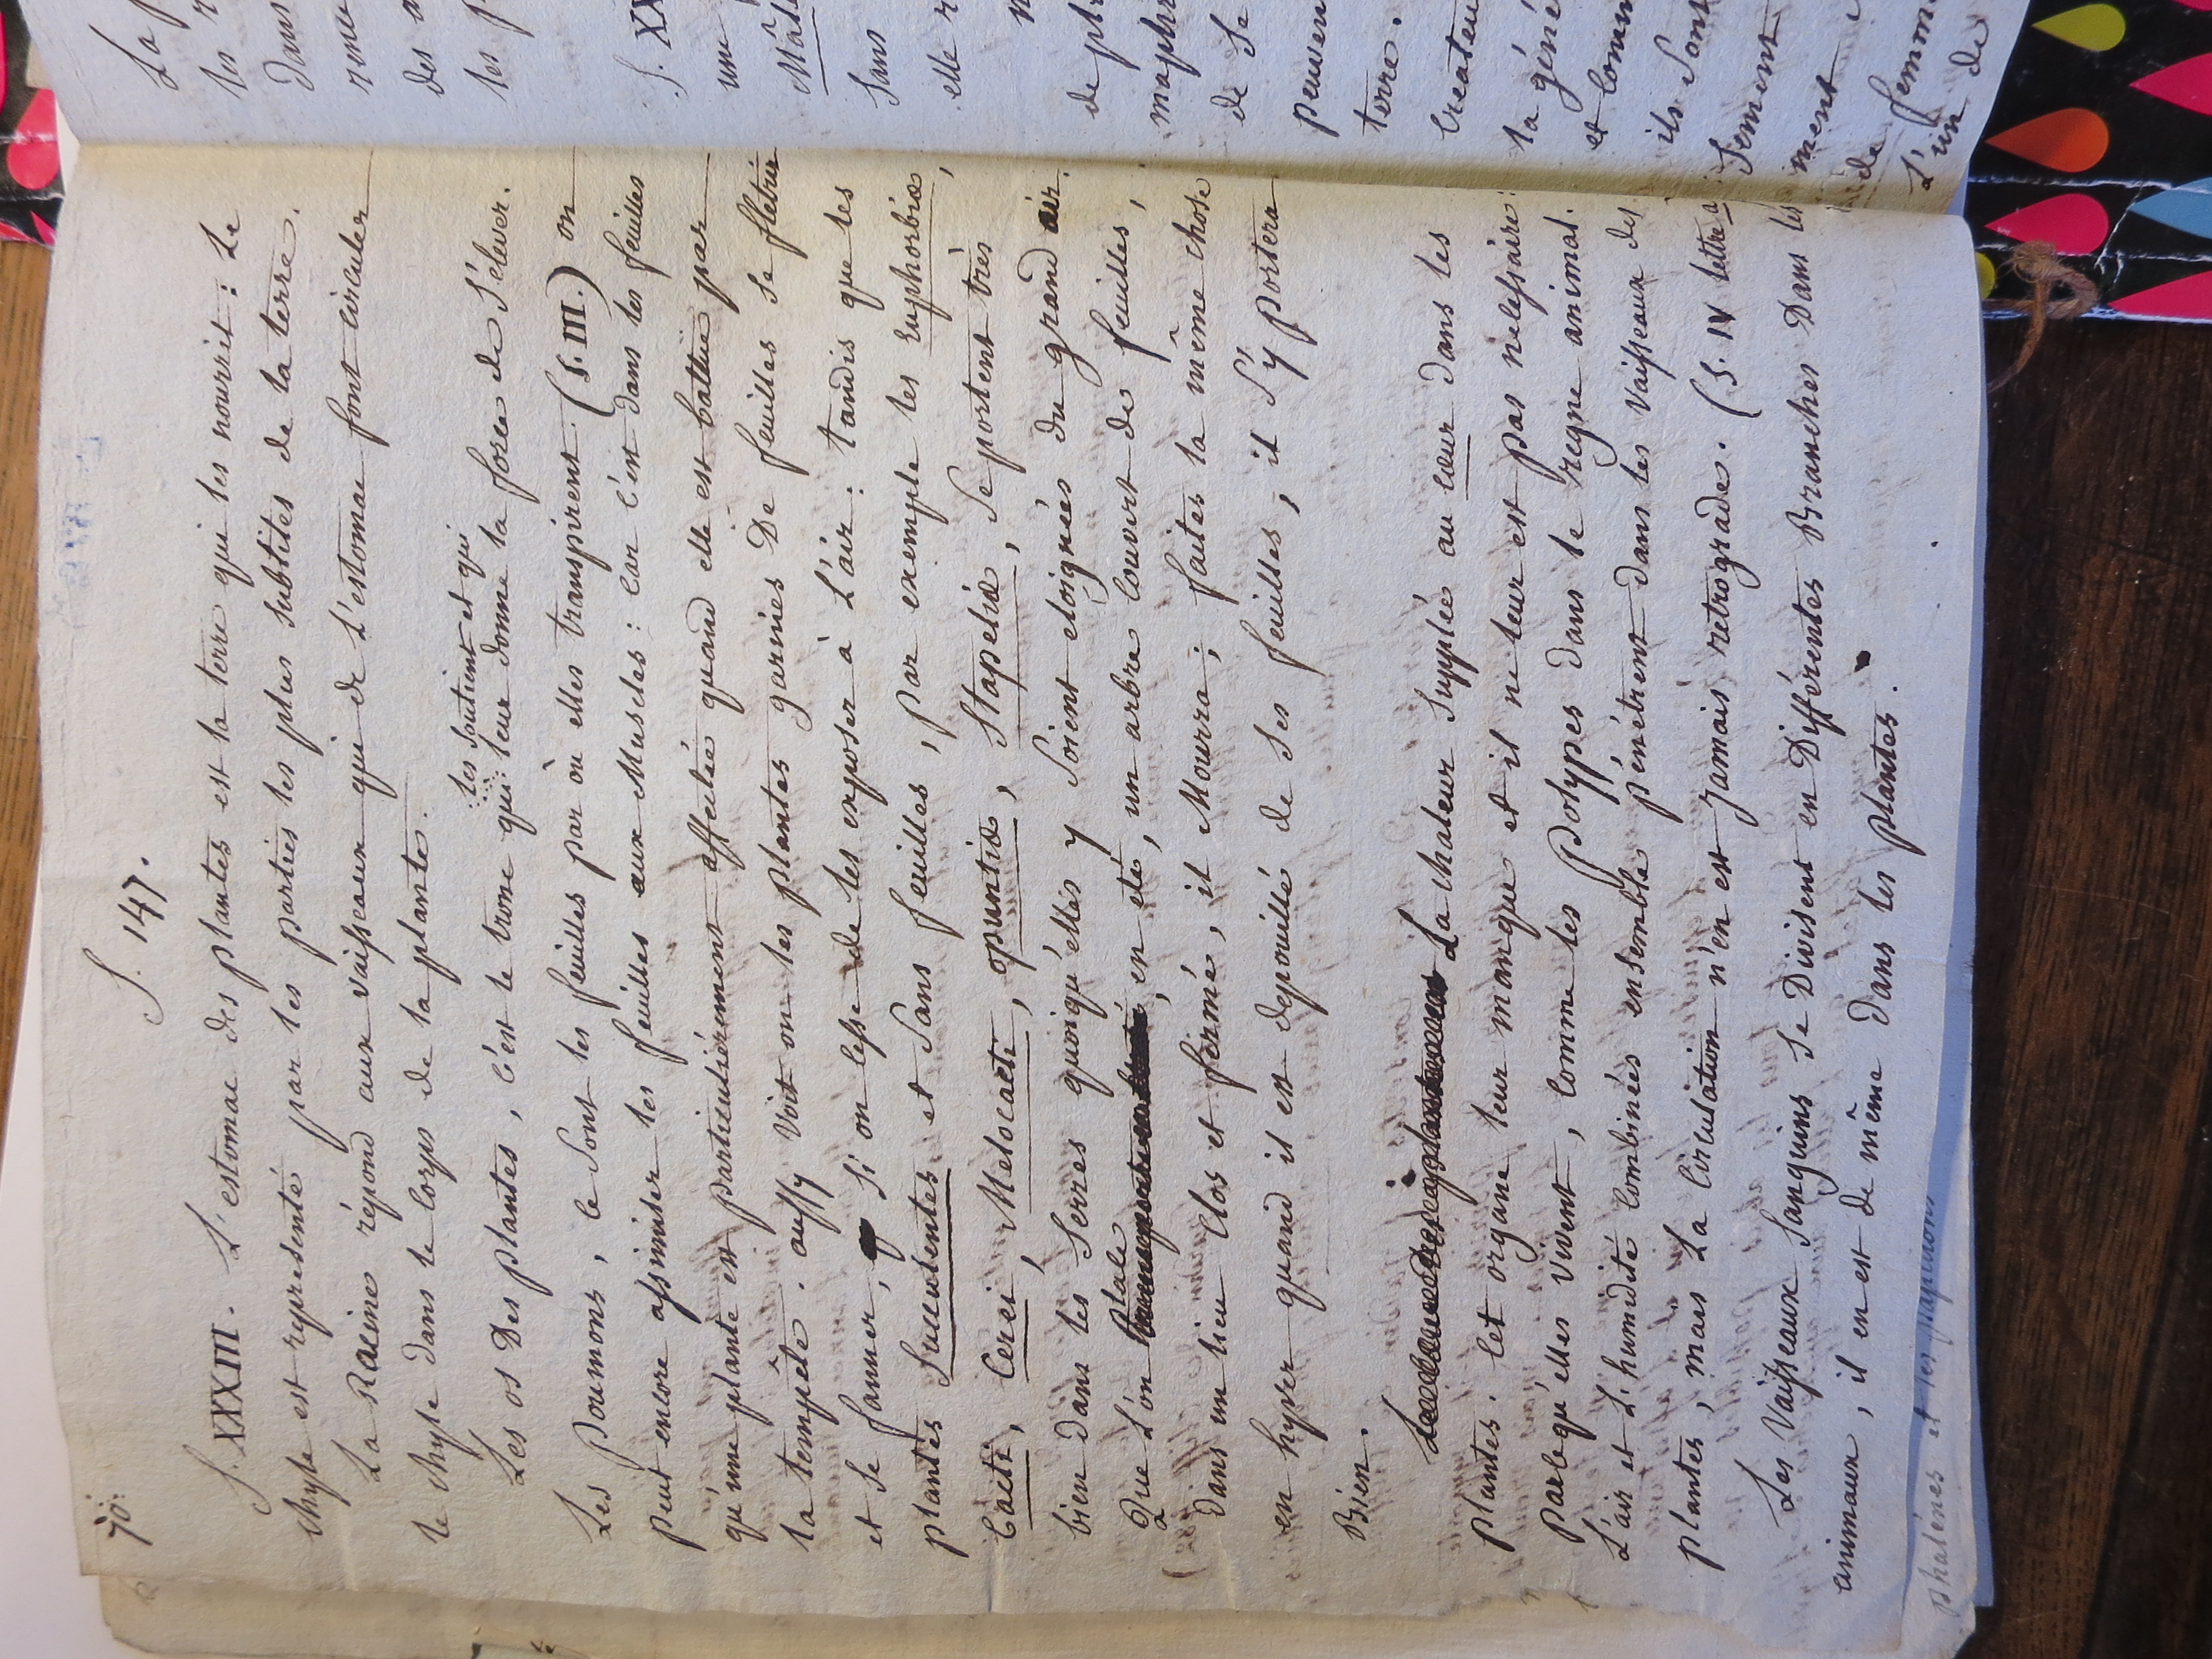 70.
§. 147.
§. XXXIII. L'estomac des plantes est la terre qui les nourrit : Le
chyle est representé par les parties les plus subtiles de la terre.
La Racine répond aux vaisseaux qui de l'estomac font circuler
le chyle dans le corps de la plante.
les soutient et qui
Les os Des plantes, c'est le tronc qui leur donne la force de s'élever.
Les Poumons, ce sont les feuilles par où elles transpirent. (§. III.) on
peut encore assimiler les feuilles aux Muscles : car c'est dans les feuilles
qu'une plante est particuliérement affectée quand elle est battue par
la tempête. aussy voit on les plantes garnies De feuilles se flétrir
et se fanner, si on cesse de les exposer à L'air : tandis que les
plantes Succulentes et Sans feuilles, par exemple les Euphorbiæ,
Cacti, Cerei, Melocacti, opuntiæ, Stapeliæ, se portent très
bien dans les Serres quoiqu'elles y soient eloignées du grand air.
Que l'on place, en eté, un arbre couvert de feuilles,
Dans un lieu Clos et fermé, il Mourra ; faites la même chose
en hyver quand il est depouillé de ses feuilles, il s'y portera
Bien.
La chaleur Supplée au cœur dans les
plantes. Cet organe leur manque et il ne leur est pas necessaire :
Parcequ'elles vivent, comme les Polypes dans le regne animal.
L'air et L'humidité combinées ensemble pénétrent dans les vaisseaux des
plantes, mais La circulation n'en est jamais retrograde. (§. IV lettre a
Les Vaisseaux Sanguins se Divisent en Différentes Branches Dans les
animaux, il en est De même Dans les plantes.
phalénes et les papillons
La p
les r
dans
des
les p
§. XX
une
Mâle
Sans
elle r
de pl
maphr
de Se
peuven
terre.
Createu
la géné
et comm
ils Sont
Sement
ment
de femm
L'un de